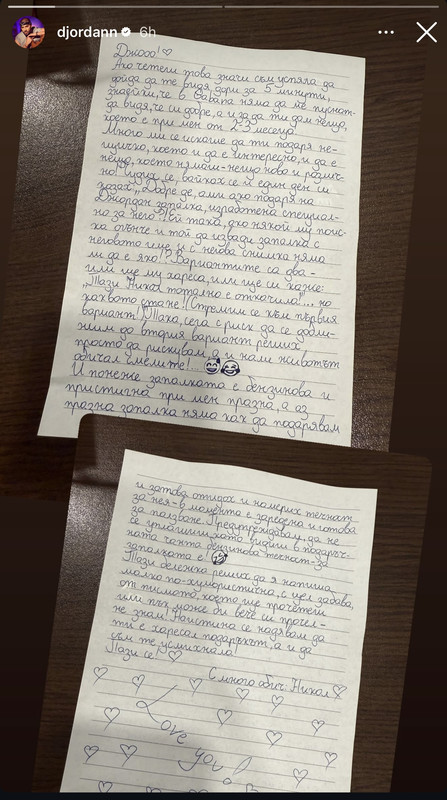 djordann 6h
Джооо!♡
Ако четеш това значи съм успяла да
дойда да те видя, дори за 5 минути,
знаейки, че в Варава няма да ме пуснат-
да видя, че си добре, а и за да ти дам нещо,
което е при мен от 2-3 месеца.
Много ми се искаше да ти подаря не-
щичко, което и да е интересно, и да е
нещо, което нямаш-нещо ново и различ-
но! Чудих се, вайках се и един ден си
казах: „Добре де, ами ако подаря на
Джордан запалка, изработена специал-
но за него?! Ей така, ако някой му поис-
ка огънче и той да извади запалка с
неговото име и с негова снимка няма
ли да е яко!? Вариантите са два -
или ще му хареса, или ще си каже:
„Тази Никол тотално е откачила!"... но
каквото стане! (Стремим се към първия
вариант!) Така, сега с риск да се добли-
жим до втория вариант реших
просто да рискувам, а и нали животът
обичал смелите!...
И понеже запалката е бензинова и
пристигна при мен празна, а аз
празна запалка няма как да подарявам
и затова отидох и намерих течност
за нея-в момента е заредена и готова
за ползване. Предупреждавам, да не
се уплашиш като видиш в подаръч-
ната чанта бензинова течност-за
запалката е!
Тази бележка реших да я напиша
малко по-хумористично, с цел забава,
от писмото, което ще прочетеш
или пък може би вече си прочел-
не знам! Наистина се надявам да
ти е харесал подаръкът, а и да
съм те усмихнала!
Пази се!♡
С много обич: Никол♡
Love
you!